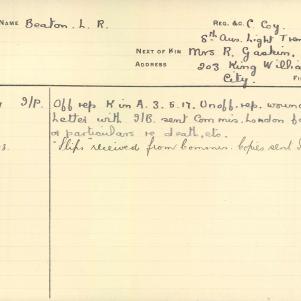 NAME Beaton. L. R. REG. &C. C Coy.
5th Aus. Light Tren
NEXT OF KIN Mrs R. Gaskin.
ADDRESS 203 King Willia
City.
I/P. Off rep K in A. 3.5.17. Unoff. rep. woun
Letter with I/B. sent Commis. London fo
particulars re death, etc.
Slips received from Commis. Copies sent